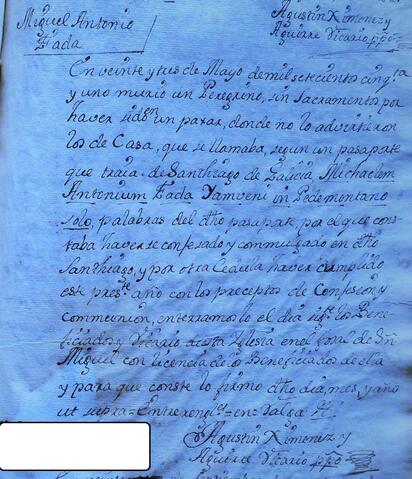 Miguel Antonio
Fada
Agustin Ximenez y
Aguirre Vicario ppo
En veinte y tres de Mayo de mil setecientos cinqta
y uno murio un Peregrino, sin Sacramentos por
haver sido en un paxar, donde no lo advirtieron
los de Casa, que se llamaba, segun un pasaporte
que traia de Santhiago de Galicia Michaelem
Antonium Fada Yamveni in Pedemontano
solo, palabras del dho pasaporte, por el que cons-
taba haverse confesado y commulgado en dho
Santhiago, y por otra Cedula haver cumplido
este preste año con los preceptos de Confesion y
Communion, enterramoslo el dia sigte los Bene-
ficiados y Vicario de esta Iglesia en el de Sn
Miguel con licencia de los Beneficiados de ella
y para que conste lo firmo dho dia, mes, y año
ut supra = Entre renges = en = Valga
Agustin Ximenez y
Aguirre Vicario ppo